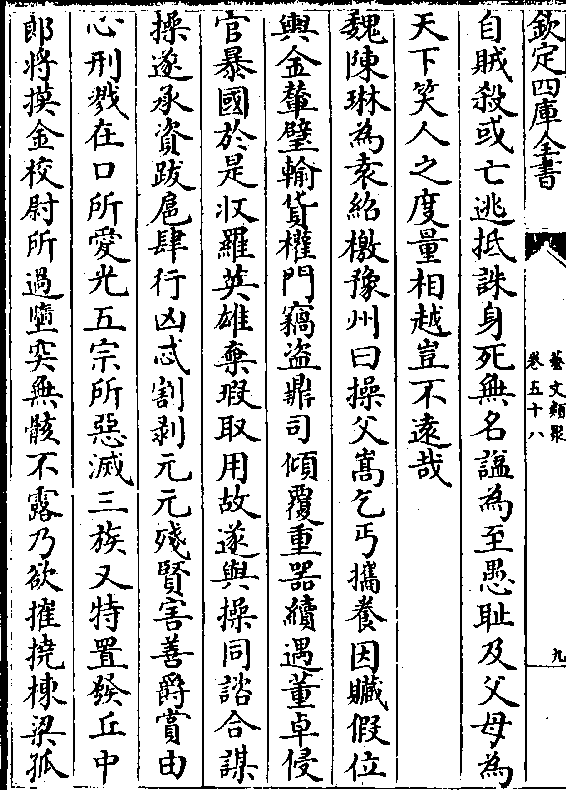 欽定四庫全書
藝文類聚
卷五十八
九
自賊殺或亡逃抵誅身死無名諡為至愚耻及父母為
天下笑人之度量相越豈不遠哉
魏陳琳為袁紹檄豫州曰操父嵩乞丐攜養因贓假位
輿金輦璧輸貨權門竊盜鼎司傾覆重器續遇董卓侵
官暴國於是収羅英雄棄瑕取用故遂與操同諮合謀
操遂承資跋扈肆行凶忒割剥元元殘賢害善爵賞由
心刑戮在口所愛光五宗所惡滅三族又特置發丘中
郎將摸金校尉所過墮突無骸不露乃欲摧撓棟梁孤